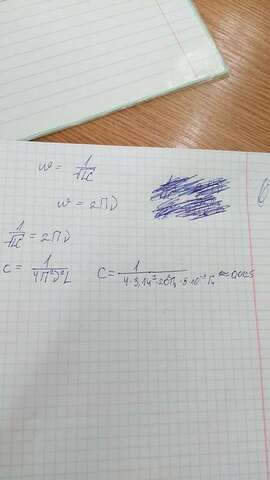 ω = 1/√LC
ω = 2πν
1/√LC = 2πν
C = 1/4π²ν²L C = 1/4·3,14²·20²Гц·3·10⁻³Гн ≈ 0,0025